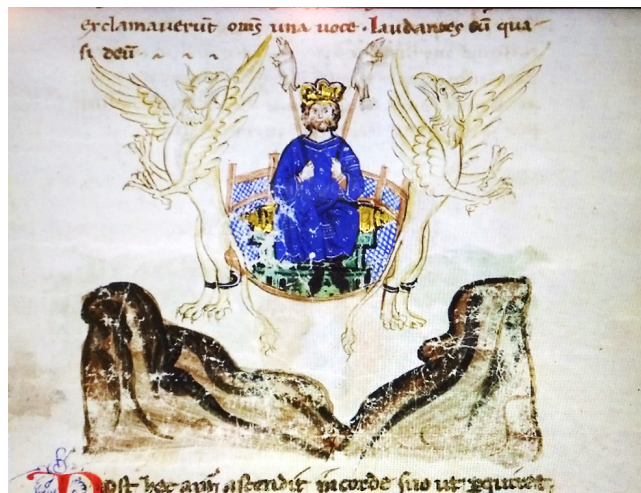 exclamaverūt om̄s una voce · laudantes eū qua
si deū
Post hec aūt ascendit in corde suo ut